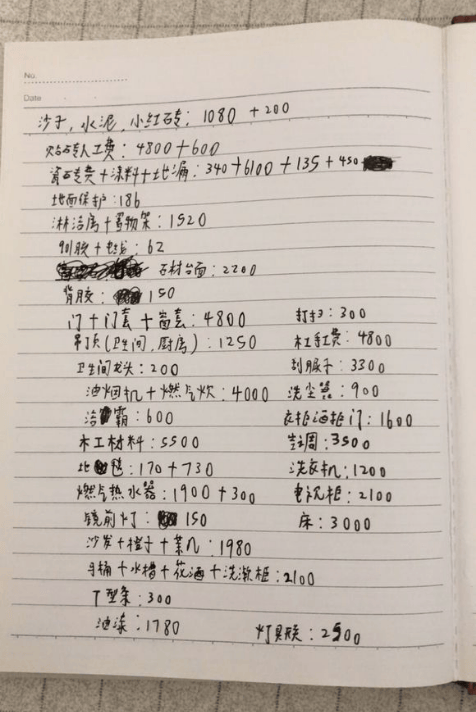 No.
Date
沙子,水泥,小红砖:1080 + 200
贴砖人工费:4800 + 600
瓷砖费 + 涂料 + 地漏:340 + 6100 + 135 + 450
地面保护:186
淋浴房 + 置物架:1520
:62
石材台面:2200
背胶:150
门 + 门套 + 窗套:4800 打扫:300
吊顶(卫生间,厨房):1250 木工手工费:4800
卫生间龙头:200 刮腻子:3300
油烟机 + 燃气灶:4000 洗尘器:900
浴霸:600 衣柜酒柜门:1600
木工材料:5500 空调:3500
地毯:170 + 730 洗衣机:1200
燃气热水器:1900 + 300 电视柜:2100
镜前灯:150 床:3000
沙发 + 椅子 + 茶几:1980
马桶 + 水槽 + 花洒 + 洗漱柜:2100
T型条:300
油漆:1780 灯具:2500